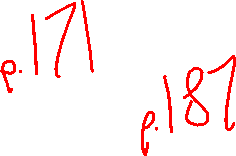 p.171
p.187